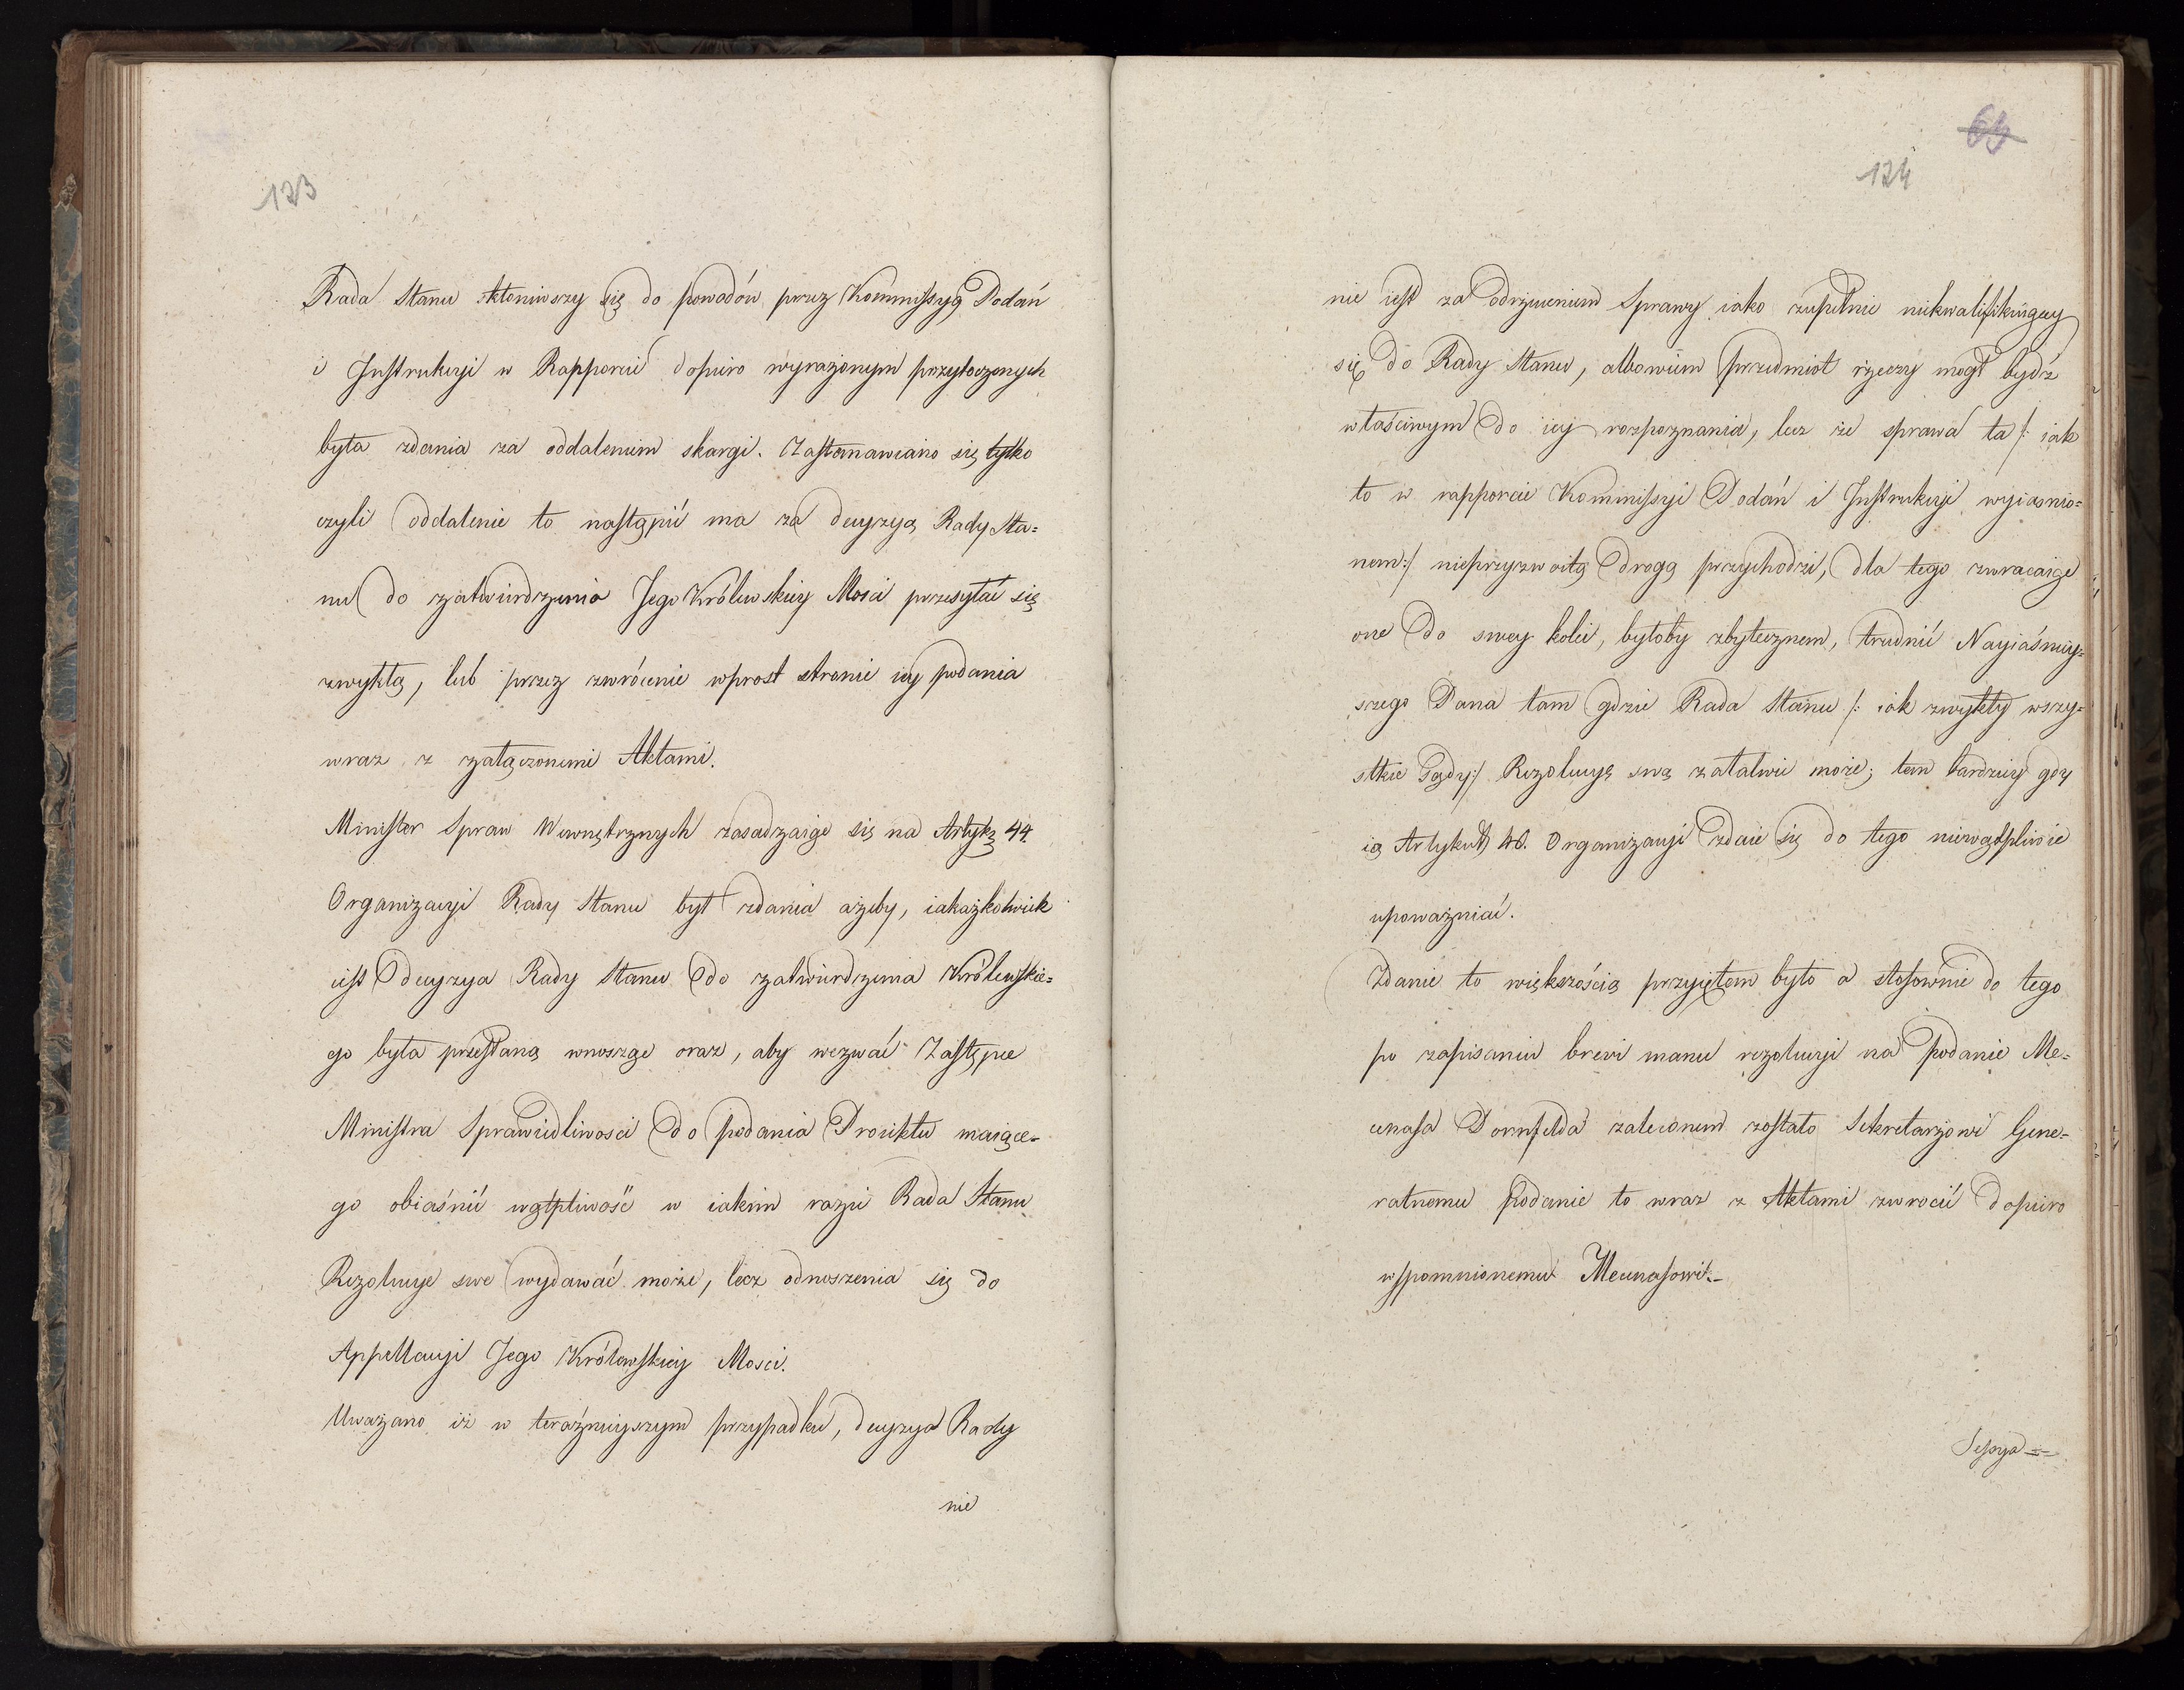 123
Rada Stanu skłoniwszy się do powodów przez Kommissyą Podań
i Instrukcyi w Rapporcie dopiero wyrażonym przytoczonych
była zdania za oddaleniem skargi. Zastanawiano się tylko
czyli oddalenie to nastąpić ma za decyzyą Rady Sta=
nu do zatwierdzenia Jego Królewskiey Mosci przesyłać się
zwykłą, lub przez zwrócenie wprost stronie iey podania
wraz z załączonemi Aktami.
Minister Spraw Wewnętrznych zasadzaiąc się na Artykz 44.
Organizacyi Rady Stanu był zdania ażeby, iakażkolwiek
iest decyzya Rady Stanu do zatwierdzenia Królewskie=
go była przesłaną wnosząc oraz, aby wezwać Zastępce
Ministra Sprawiedliwosci do podania Proiektu maiące-
go obiaśnić wątpliwość w iakim razie Rada Stanu
Rezolucye swe wydawać może, lecz odnoszenia się do
Appellacyi Jego Królewskiey Mosci.
Uważano iż w teraźnieyszym przypadku, decyzya Rady
nie
64
124
nie iest za odrzuceniem Sprawy iako zupełnie niekwalifikuiącey
się do Rady Stanu, albowiem przedmiot rzeczy mogł bydź
właściwym do iey rozpoznania, lecz że sprawa ta /: iak
to w rapporcie Kommissyi Podań i Instrukcyi wyiasnio=
nem :/ nieprzyzwoitą drogą przychodzi, dla tego zwracaiąc
one do swey kolei, byłoby zbytecznem, trudnić Nayiaśniey=
szego Pana tam gdzie Rada Stanu /: iak zwykły wszy=
stkie Sądy :/ Rezolucyą swą załatwić może; tem bardziey gdy
ią Artykuł 46. Organizacyi zdaie się do tego niewątpliwie
upoważniać.
Zdanie to większością przyiętem było a stosownie do tego
po zapisaniu brevi manu rezolucyi na podanie Me=
cenasa Dornfelda zaleconem zostało Sekretarzowi Gene=
ralnemu podanie to wraz z Aktami zwrocić dopiero
wspomnionemu Mecenasowi.-
Sessya =